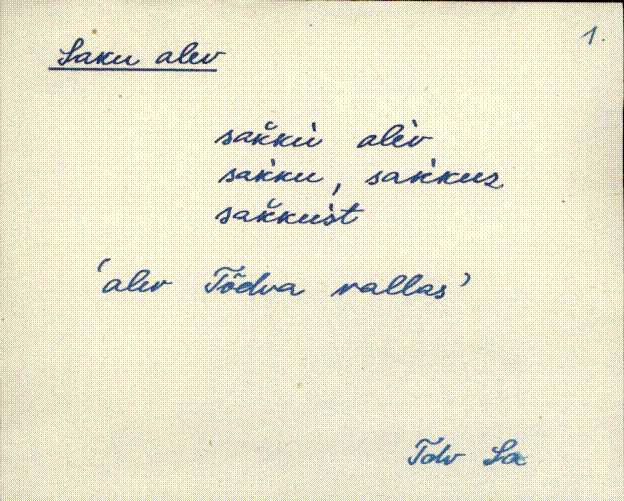 1.
Saku alev
sak̆kù alèv
sak̀ku, sak̀kuz
sak̆kùst
‘alev Tõdva vallas’
Tõdv Sa